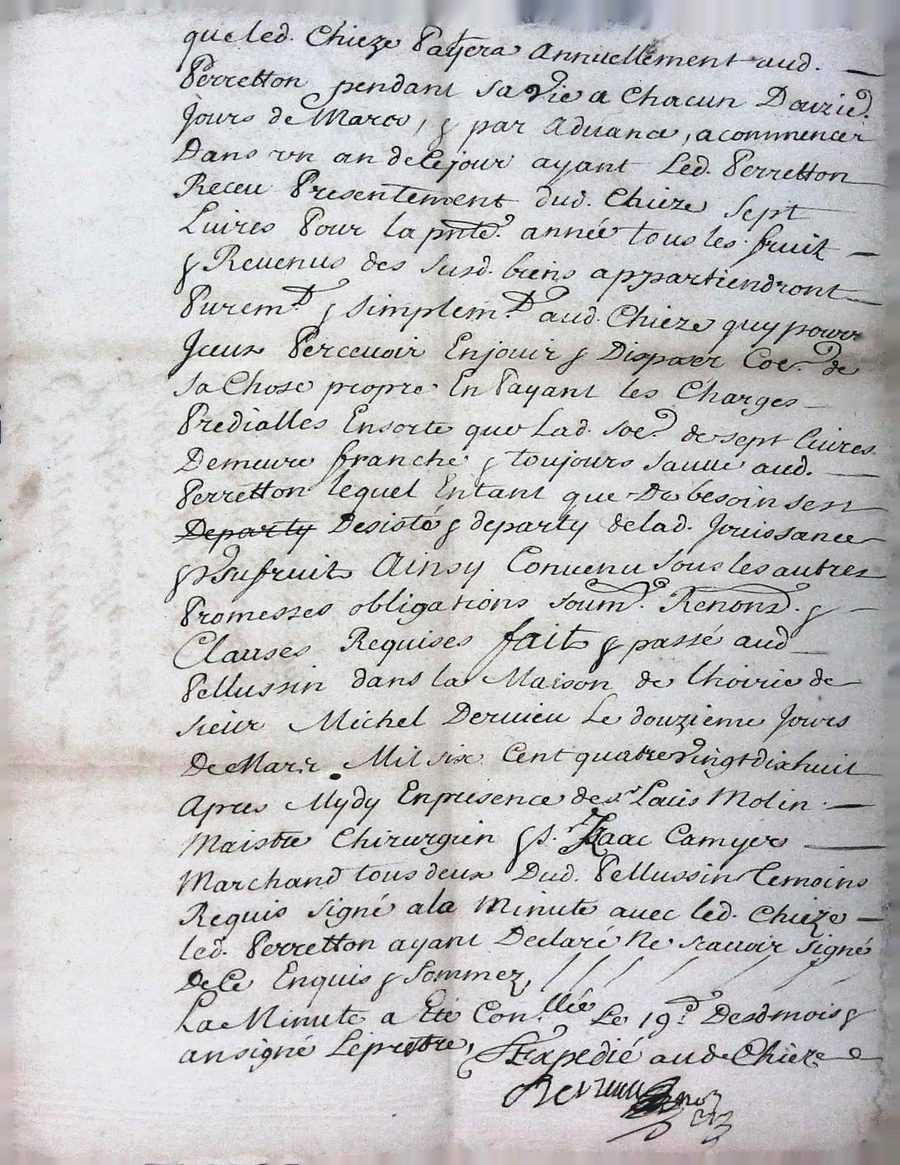 que led. Chieze Payera Annuellement aud. —
Perretton pendant sa vie a Chacun Douzie.
Jours de Marcs, & par Advance, a commencer
Dans vn an de Ce jour ayant Led. Perretton
Receu Presentement dud. Chieze Sept
Liures Pour la pnte. année tous les fruit —
& Reuenus des susd. biens appartiendront
Purem.t & simplem.t aud. Chieze quy pourr
Jceux Perceuoir Enjouir & Disposer Coe. de
sa Chose propre En Payant les Charges
Predialles Ensorte que Lad. soe. de sept Liures
Demeure franche & toujours sauue aud.
Perretton lequel Entant que De besoin sest
Departy Desisté & departy delad. Jouissance
& Vsufruit Ainsy Conuenu sous les autres
Promesses obligations soum. Renons. &
Clauses Requises fait & passé aud
Pellussin dans la Maison de lhoirie de
sieur Michel Deruieu Le douzieme Jours
De Mars Mil six Cent quatre Vingt dix huit
Apres Mydy En presence de sr. Louis Molin —
Maistre Chirurgien & sr. Isaac Camyer
Marchand tous deux Dud. Pellussin temoins
Requis signé a la Minute auec led. Chieze —
led. Perretton ayant Declaré Ne scauoir signé
De Ce Enquis & Sommez
La Minute a Eté Con.llée Le 19.e Desd mois &
an signé Leprestre, Expedié aud Chieze